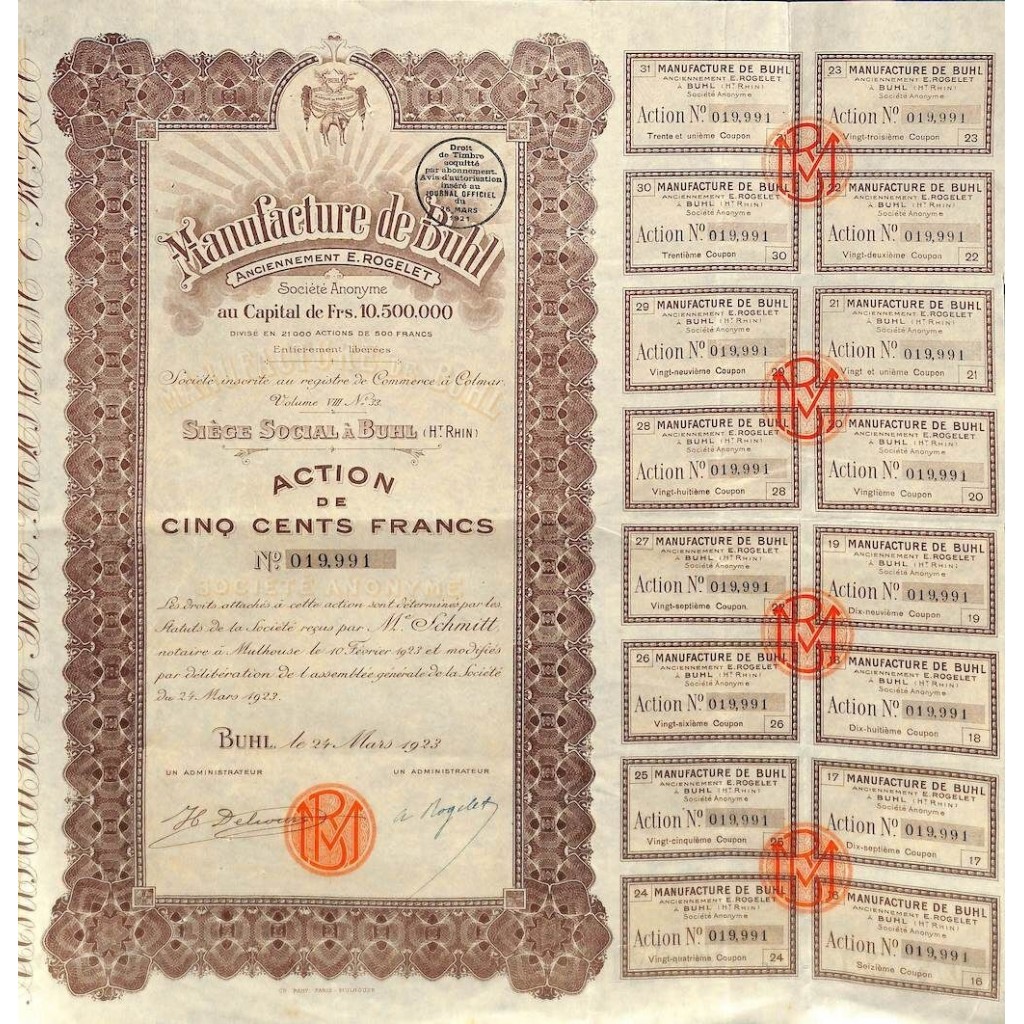 Droit
de Timbre
acquitté
par abonnement.
Avis d'autorisation
inséré au
JOURNAL OFFICIEL
du
MARS
1921
Manufacture de Buhl
ANCIENNEMENT E. ROGELET
Société Anonyme
au Capital de Frs. 10.500.000
DIVISÉ EN 21000 ACTIONS DE 500 FRANCS
Entièrement libérées
Société inscrite au registre de Commerce à Colmar
Volume VIII No. 32.
SIÈGE SOCIAL À BUHL (HT RHIN)
ACTION
DE
CINQ CENTS FRANCS
No 019,991
SOCIÉTÉ ANONYME
Les droits attachés à cette action sont déterminés par les
Statuts de la Société reçus par Me Schmitt,
notaire à Mulhouse le 10 Février 1923 et modifiés
par délibération de l'assemblée générale de la Société
du 24 Mars 1923.
BUHL, le 24 Mars 1923
UN ADMINISTRATEUR
UN ADMINISTRATEUR
a Rogelet
31 MANUFACTURE DE BUHL
ANCIENNEMENT E. ROGELET
À BUHL (HT RHIN)
Société Anonyme
Action No 019,991
Trente et unième Coupon
23 MANUFACTURE DE BUHL
ANCIENNEMENT E. ROGELET
À BUHL (HT RHIN)
Société Anonyme
Action No 019,991
Vingt-troisième Coupon 23
30 MANUFACTURE DE BUHL
ANCIENNEMENT E. ROGELET
À BUHL (HT RHIN)
Société Anonyme
Action No 019,991
Trentième Coupon 30
22 MANUFACTURE DE BUHL
ANCIENNEMENT E. ROGELET
À BUHL (HT RHIN)
Société Anonyme
Action No 019,991
Vingt-deuxième Coupon 22
29 MANUFACTURE DE BUHL
ANCIENNEMENT E. ROGELET
À BUHL (HT RHIN)
Société Anonyme
Action No 019,991
Vingt-neuvième Coupon 29
21 MANUFACTURE DE BUHL
ANCIENNEMENT E. ROGELET
À BUHL (HT RHIN)
Société Anonyme
Action No 019,991
Vingt et unième Coupon 21
28 MANUFACTURE DE BUHL
ANCIENNEMENT E. ROGELET
À BUHL (HT RHIN)
Société Anonyme
Action No 019,991
Vingt-huitième Coupon 28
20 MANUFACTURE DE BUHL
ANCIENNEMENT E. ROGELET
À BUHL (HT RHIN)
Société Anonyme
Action No 019,991
Vingtième Coupon 20
27 MANUFACTURE DE BUHL
ANCIENNEMENT E. ROGELET
À BUHL (HT RHIN)
Société Anonyme
Action No 019,991
Vingt-septième Coupon 27
19 MANUFACTURE DE BUHL
ANCIENNEMENT E. ROGELET
À BUHL (HT RHIN)
Société Anonyme
Action No 019,991
Dix-neuvième Coupon 19
26 MANUFACTURE DE BUHL
ANCIENNEMENT E. ROGELET
À BUHL (HT RHIN)
Société Anonyme
Action No 019,991
Vingt-sixième Coupon 26
18 MANUFACTURE DE BUHL
ANCIENNEMENT E. ROGELET
À BUHL (HT RHIN)
Société Anonyme
Action No 019,991
Dix-huitième Coupon 18
25 MANUFACTURE DE BUHL
ANCIENNEMENT E. ROGELET
À BUHL (HT RHIN)
Société Anonyme
Action No 019,991
Vingt-cinquième Coupon 25
17 MANUFACTURE DE BUHL
ANCIENNEMENT E. ROGELET
À BUHL (HT RHIN)
Société Anonyme
Action No 019,991
Dix-septième Coupon 17
24 MANUFACTURE DE BUHL
ANCIENNEMENT E. ROGELET
À BUHL (HT RHIN)
Société Anonyme
Action No 019,991
Vingt-quatrième Coupon 24
16 MANUFACTURE DE BUHL
ANCIENNEMENT E. ROGELET
À BUHL (HT RHIN)
Société Anonyme
Action No 019,991
Seizième Coupon 16